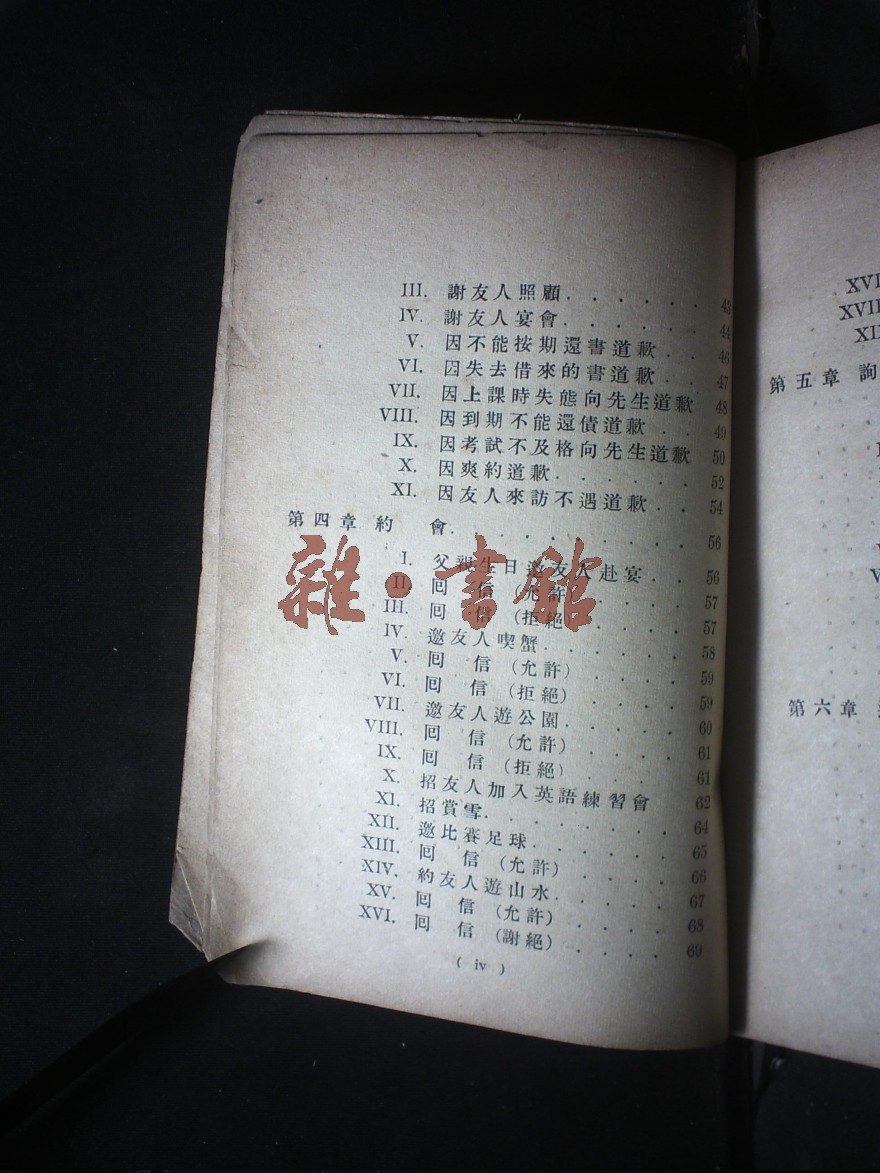 III. 謝友人照顧 . . . . . . 43
IV. 謝友人宴會 . . . . . . 44
V. 因不能按期還書道歉 . . 46
VI. 因失去借來的書道歉 . . 47
VII. 因上課時失態向先生道歉 48
VIII. 因到期不能還債道歉 . . 49
IX. 因考試不及格向先生道歉 50
X. 因爽約道歉 . . . . . . 52
XI. 因友人來訪不遇道歉 . . 54
第四章 約 會 . . . . . . . . 56
I. 父親生日邀友人赴宴 . . 56
II. 囘 信 (允許) . . . . 57
III. 囘 信 (拒絕) . . . . 57
IV. 邀友人喫蟹 . . . . . 58
V. 囘 信 (允許) . . . . 59
VI. 囘 信 (拒絕) . . . . 59
VII. 邀友人遊公園 . . . . 60
VIII. 囘 信 (允許) . . . . 61
IX. 囘 信 (拒絕) . . . . 61
X. 招友人加入英語練習會 62
XI. 招賞雪 . . . . . . . 64
XII. 邀比賽足球 . . . . . 65
XIII. 囘 信 (允許) . . . . 66
XIV. 約友人遊山水 . . . . 67
XV. 囘 信 (允許) . . . . 68
XVI. 囘 信 (謝絕) . . . . 69
( iv )
雜·書館
第五章 詢
第六章